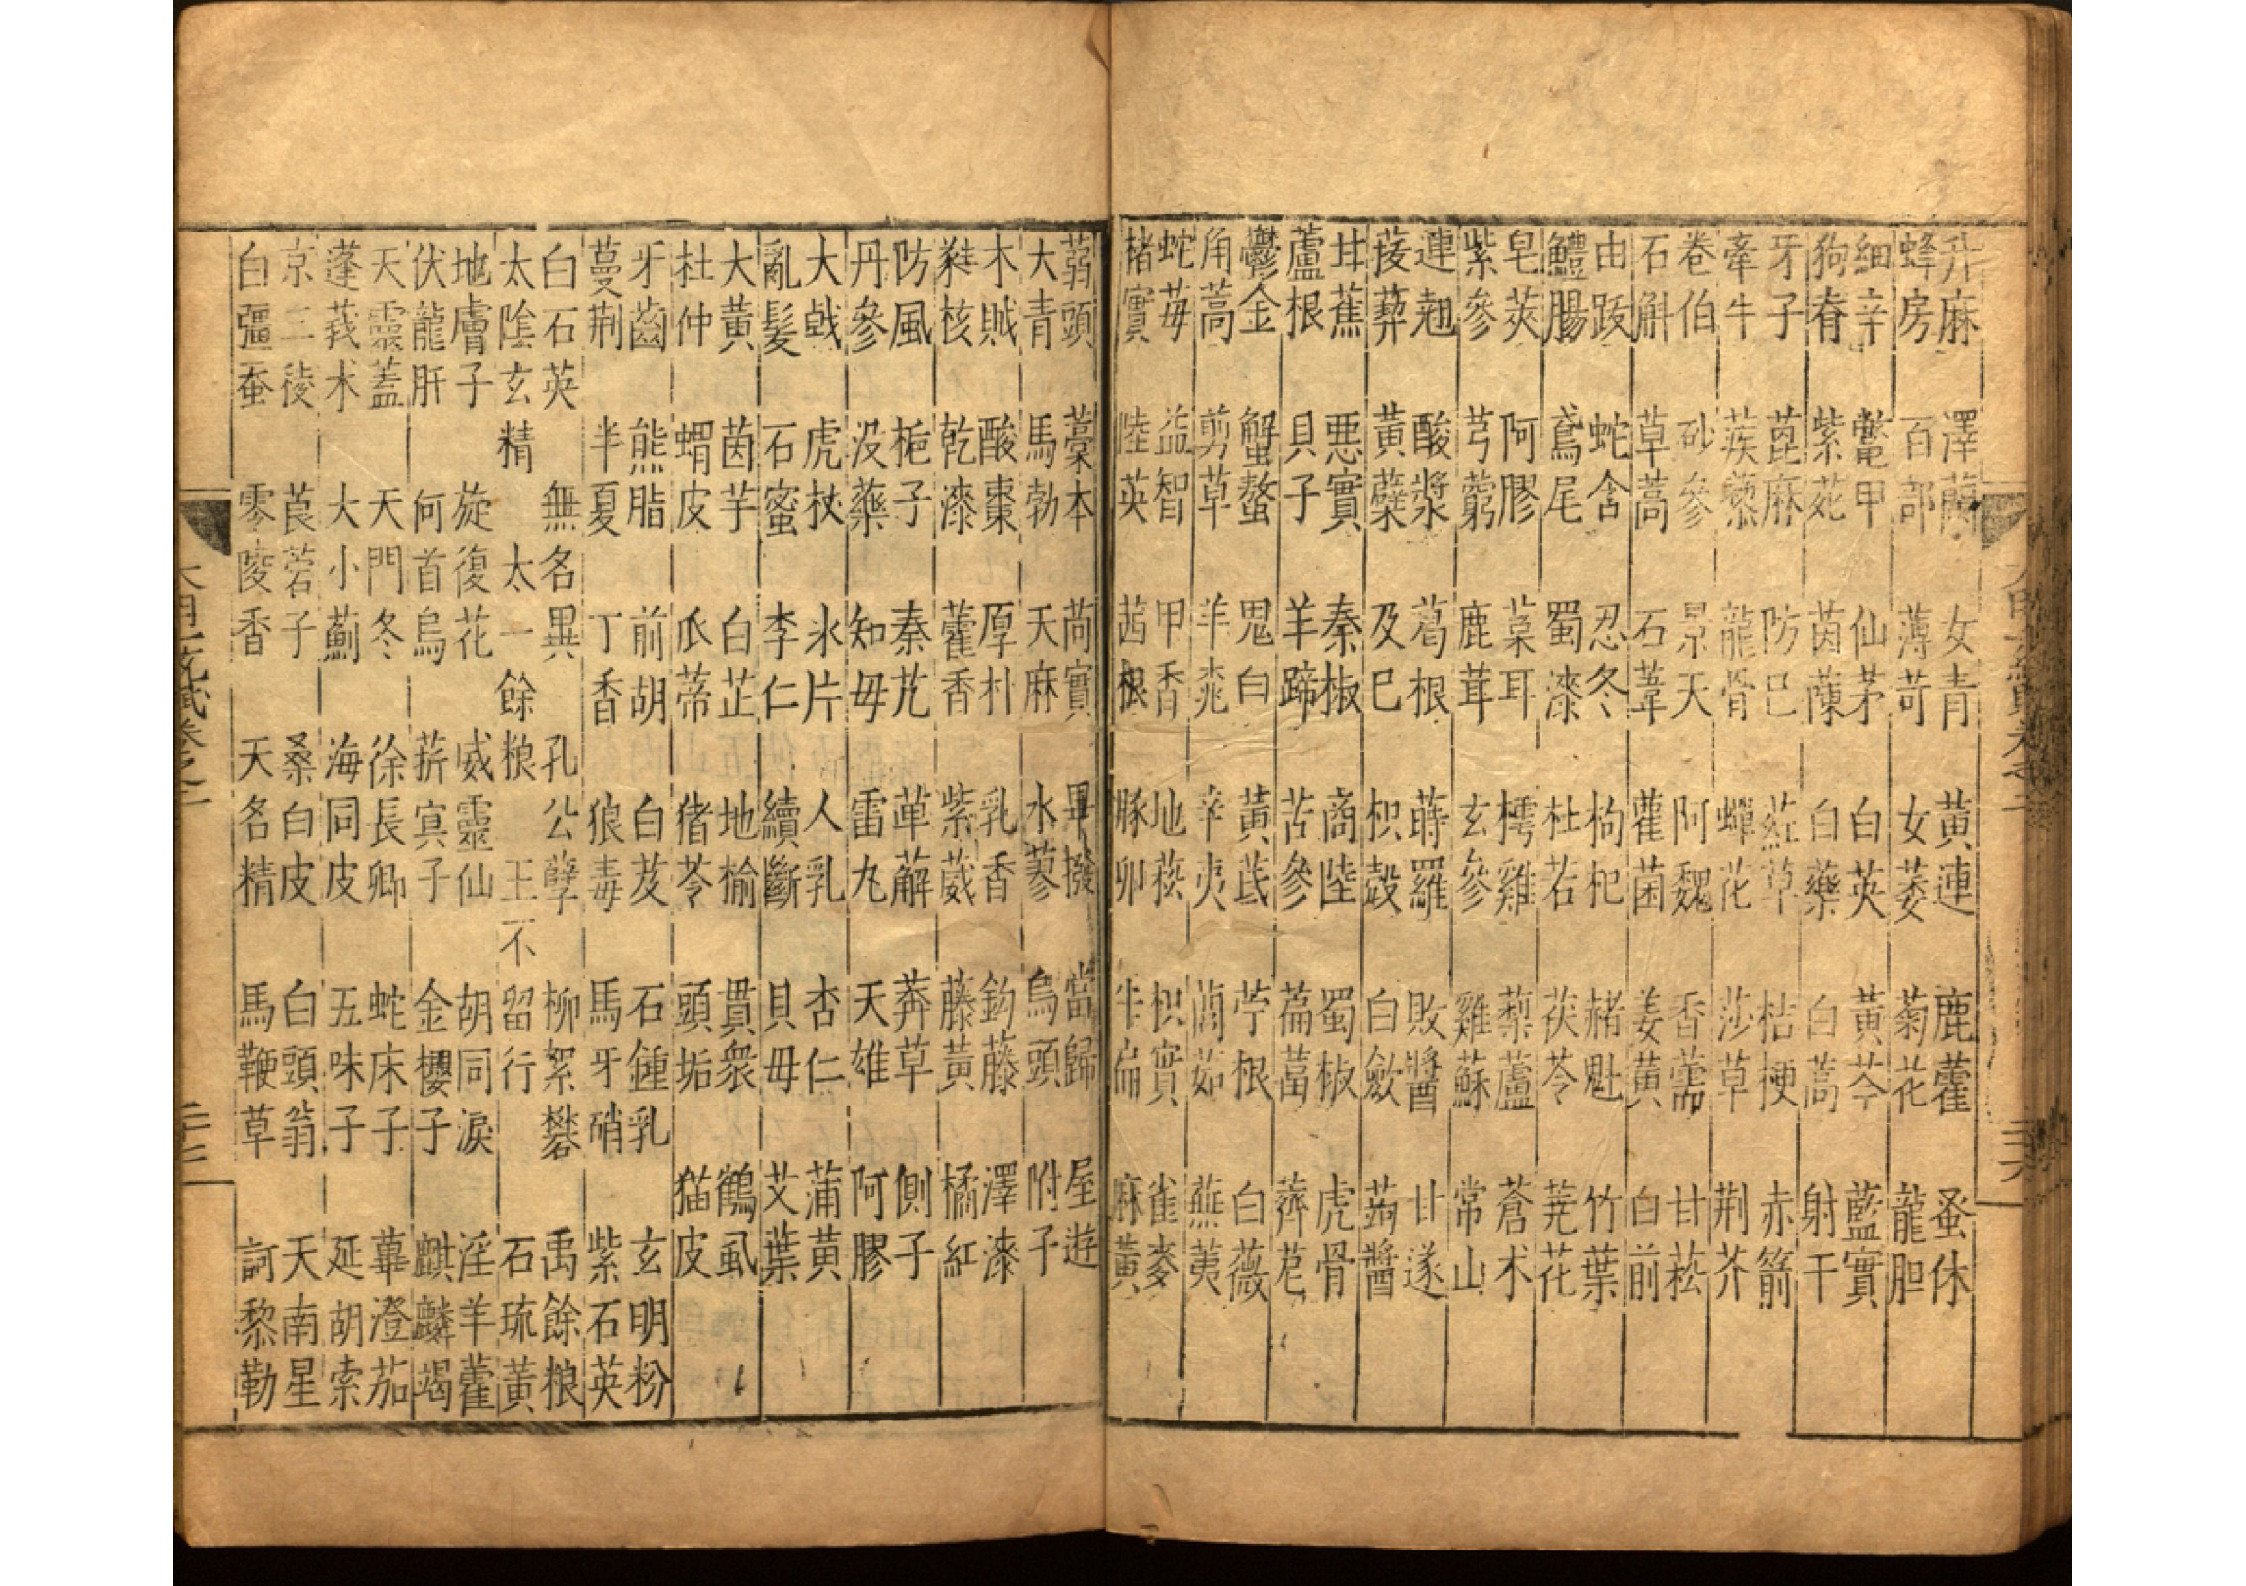 升麻 澤蘭 女青 黃連 鹿藿 蚤休
蜂房 百部 薄苛 女萎 菊花 龍胆
細辛 鼈甲 仙茅 白英 黃芩 藍實
狗脊 紫菀 茵蔯 白藥 白蒿 射干
牙子 萞麻 防巳 葒草 桔梗 赤箭
牽牛 蒺蔾 龍骨 蟬花 莎草 荆芥
卷伯 砂參 景天 阿魏 香薷 甘菘
石斛 草蒿 石葦 雚菌 姜黃 白前
由跋 蛇含 忍冬 枸杞 赭魁 竹葉
鱧腸 鳶尾 蜀漆 杜若 茯苓 芫花
皂莢 阿膠 葈耳 樗雞 藜蘆 蒼术
紫參 芎藭 鹿茸 玄參 雞蘇 常山
連翹 酸漿 葛根 蒔羅 敗醬 甘遂
菝葜 黃蘗 及巳 枳殼 白斂 蒟醬
甘蕉 惡實 秦椒 商陸 蜀椒 虎骨
蘆根 貝子 羊蹄 苦參 萹蓄 薺苨
鬱金 蟹螯 鬼臼 黃芪 苧根 白薇
角蒿 剪草 羊桃 辛夷 蕳茹 蕪荑
蛇苺 益智 甲香 地菘 枳實 雀麥
楮實 陸英 茜根 豚卵 牛扁 麻黃
蒻頭 藁本 茼實 畢撥 當歸 屋遊
大青 馬勃 天麻 水蓼 烏頭 附子
木賊 酸棗 厚朴 乳香 鈎藤 澤漆
蕤核 乾漆 藿香 紫葳 藤黃 橘紅
防風 梔子 秦艽 萆薢 莽草 側子
丹參 沒藥 知毋 雷丸 天雄 阿膠
大戟 虎杖 氷片 人乳 杏仁 蒲黃
亂髮 石蜜 李仁 續斷 貝毋 艾葉
大黃 茵芋 白芷 地榆 貫衆 鶴虱
杜仲 蝟皮 瓜蒂 猪苓 頭垢 猫皮
牙齒 熊脂 前胡 白芨 石鍾乳 玄明粉
蔓荆 半夏 丁香 狼毒 馬牙硝 紫石英
白石英 無名異 孔公孽 柳絮礬 禹餘粮
太陰玄精 太一餘粮 王不留行 石琉黃
地膚子 旋復花 威靈仙 胡同淚 淫羊藿
伏龍肝 何首烏 菥蓂子 金櫻子 麒麟竭
天靈蓋 天門冬 徐長卿 蛇床子 蓽澄茄
蓬莪术 大小薊 海同皮 五味子 延胡索
京三稜 莨菪子 桑白皮 白頭翁 天南星
白殭蚕 零陵香 天名精 馬鞭草 訶黎勒